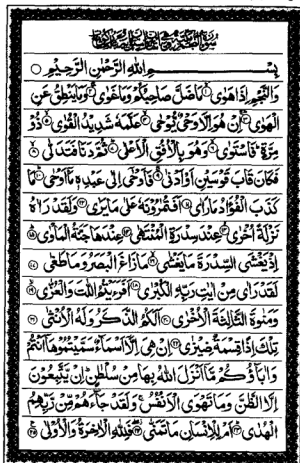 بِسْمِ اللهِ الرَّحْمٰنِ الرَّحِيْمِ
وَالنَّجْمِ اِذَا هَوٰى ۱ مَا ضَلَّ صَاحِبُكُمْ وَمَا غَوٰى ۲ وَمَا يَنْطِقُ عَنِ
الْهَوٰى ۳ اِنْ هُوَ اِلَّا وَحْىٌ يُّوْحٰى ۴ عَلَّمَهٗ شَدِيْدُ الْقُوٰى ۵ ذُوْ
مِرَّةٍ فَاسْتَوٰى ۶ وَهُوَ بِالْاُفُقِ الْاَعْلٰى ۷ ثُمَّ دَنَا فَتَدَلّٰى ۸
فَكَانَ قَابَ قَوْسَيْنِ اَوْ اَدْنٰى ۹ فَاَوْحٰى اِلٰى عَبْدِهٖ مَا اَوْحٰى ۱۰ مَا
كَذَبَ الْفُؤَادُ مَا رَاٰى ۱۱ اَفَتُمٰرُوْنَهٗ عَلٰى مَا يَرٰى ۱۲ وَلَقَدْ رَاٰهُ
نَزْلَةً اُخْرٰى ۱۳ عِنْدَ سِدْرَةِ الْمُنْتَهٰى ۱۴ عِنْدَهَا جَنَّةُ الْمَاْوٰى ۱۵
اِذْ يَغْشَى السِّدْرَةَ مَا يَغْشٰى ۱۶ مَا زَاغَ الْبَصَرُ وَمَا طَغٰى ۱۷
لَقَدْ رَاٰى مِنْ اٰيٰتِ رَبِّهِ الْكُبْرٰى ۱۸ اَفَرَءَيْتُمُ اللّٰتَ وَالْعُزّٰى ۱۹
وَمَنٰوةَ الثَّالِثَةَ الْاُخْرٰى ۲۰ اَلَكُمُ الذَّكَرُ وَلَهُ الْاُنْثٰى ۲۱
تِلْكَ اِذًا قِسْمَةٌ ضِيْزٰى ۲۲ اِنْ هِىَ اِلَّا اَسْمَآءٌ سَمَّيْتُمُوْهَا اَنْتُمْ
وَاٰبَآؤُكُمْ مَّا اَنْزَلَ اللهُ بِهَا مِنْ سُلْطٰنٍ اِنْ يَّتَّبِعُوْنَ
اِلَّا الظَّنَّ وَمَا تَهْوَى الْاَنْفُسُ وَلَقَدْ جَآءَهُمْ مِّنْ رَّبِّهِمُ
الْهُدٰى ۲۳ اَمْ لِلْاِنْسَانِ مَا تَمَنّٰى ۲۴ فَلِلّٰهِ الْاٰخِرَةُ وَالْاُوْلٰى ۲۵